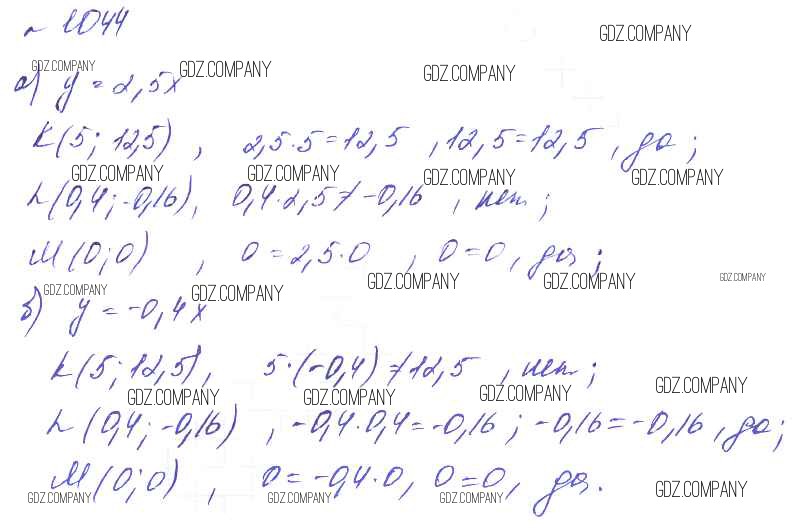 № 1044
GDZ.COMPANY
а) y = 2,5x
GDZ.COMPANY GDZ.COMPANY GDZ.COMPANY
K(5; 12,5) , 2,5·5=12,5 , 12,5=12,5 , да ;
GDZ.COMPANY GDZ.COMPANY GDZ.COMPANY GDZ.COMPANY
L(0,4; -0,16), 0,4·2,5≠-0,16 , нет ;
M(0;0) , 0=2,5·0 , 0=0, да ;
GDZ.COMPANY GDZ.COMPANY GDZ.COMPANY GDZ.COMPANY GDZ.COMPANY
б) y = -0,4x
K(5; 12,5), 5·(-0,4)≠12,5 , нет ;
GDZ.COMPANY GDZ.COMPANY GDZ.COMPANY GDZ.COMPANY
L(0,4; -0,16) , -0,4·0,4=-0,16 ; -0,16=-0,16 , да ;
M(0;0) , 0=-0,4·0, 0=0, да.
GDZ.COMPANY GDZ.COMPANY GDZ.COMPANY GDZ.COMPANY